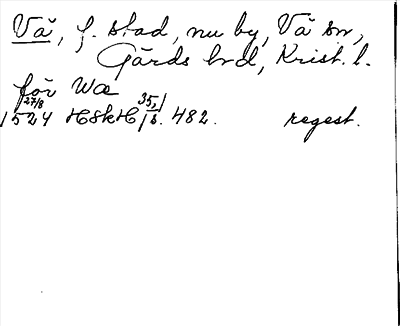 Vä, f. stad, nu by, Vä sn,
Gärds hrd, Krist. l.
för Wæ
27/8 35,1
1524 HSkH 1 s. 482. regest.